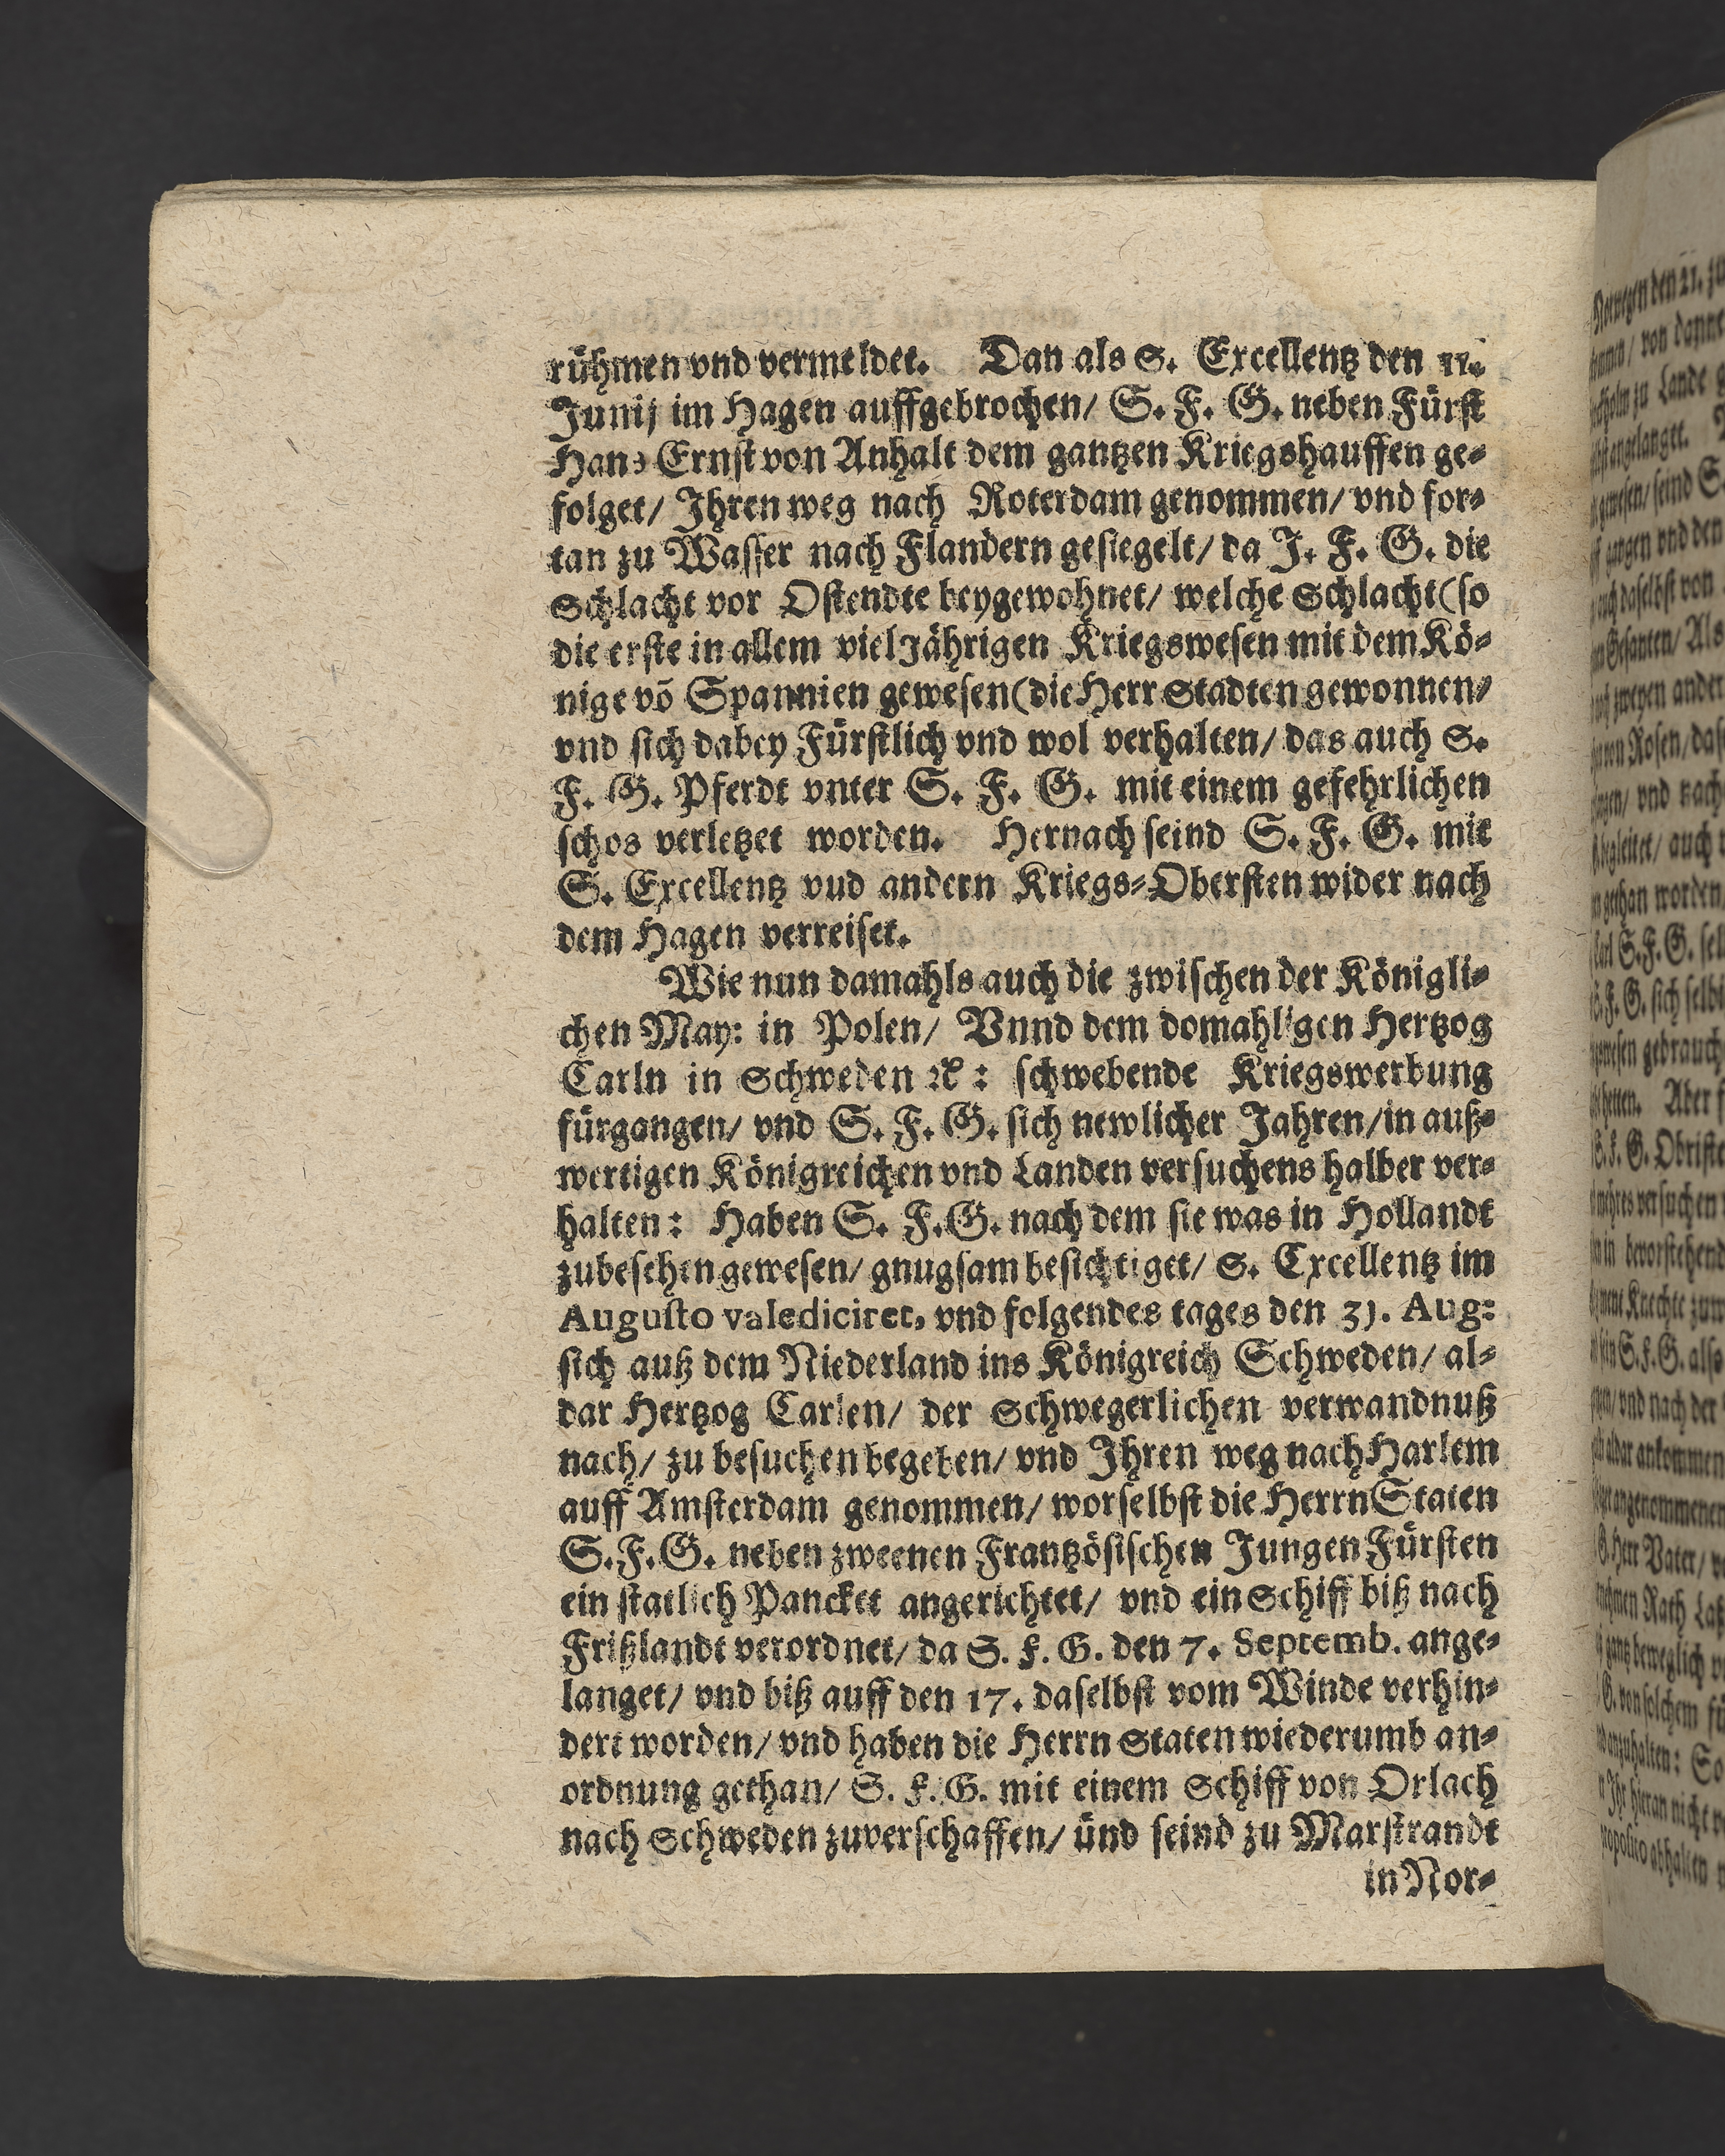 rühmen vnd vermeldet. Dan als S. Excellentz den 11.
Junij im Hagen auffgebrochen/ S. F. G. neben Fürst
Hans Ernst von Anhalt dem gantzen Kriegshauffen ge-
folget/ Ihren weg nach Roterdam genommen/ vnd for-
tan zu Wasser nach Flandern gesiegelt/ da J. F. G. die
Schlacht vor Ostendte beygewohnet/ welche Schlacht (so
die erste in allem vielJährigen Kriegswesen mit dem Kö-
nige võ Spannien gewesen (die Herr Stadten gewonnen/
vnd sich dabey Fürstlich vnd wol verhalten/ das auch S.
F. G. Pferdt vnter S. F. G. mit einem gefehrlichen
schos verletzet worden. Hernach seind S. F. G. mit
S. Excellentz vud andern Kriegs-Obersten wider nach
dem Hagen verreiset.
Wie nun damahls auch die zwischen der Königli-
chen May: in Polen/ Vnnd dem domahligen Hertzog
Carln in Schweden ꝛc: schwebende Kriegswerbung
fürgangen/ vnd S. F. G. sich newlicher Jahren/ in auß-
wertigen Königreichen vnd Landen versuchens halber ver-
halten: Haben S. F. G. nach dem sie was in Hollandt
zubesehen gewesen/ gnugsam besichtiget/ S. Excellentz im
Augusto valediciret, vnd folgendes tages den 31. Aug:
sich auß dem Niederland ins Königreich Schweden/ al-
dar Hertzog Carlen/ der Schwegerlichen verwandnuß
nach/ zu besuchen begeben/ vnd Ihren weg nach Harlem
auff Amsterdam genommen/ worselbst die Herrn Staten
S. F. G. neben zweenen Frantzösischen Jungen Fürsten
ein statlich Panckett angerichtet/ vnd ein Schiff biß nach
Frißlandt verordnet/ da S. F. G. den 7. Septemb. ange-
langet/ vnd biß auff den 17. daselbst vom Winde verhin-
dert worden/ vnd haben die Herrn Staten wiederumb an-
ordnung gethan/ S. F. G. mit einem Schiff von Orlach
nach Schweden zuverschaffen/ ünd seind zu Marstrandt
in Nor-